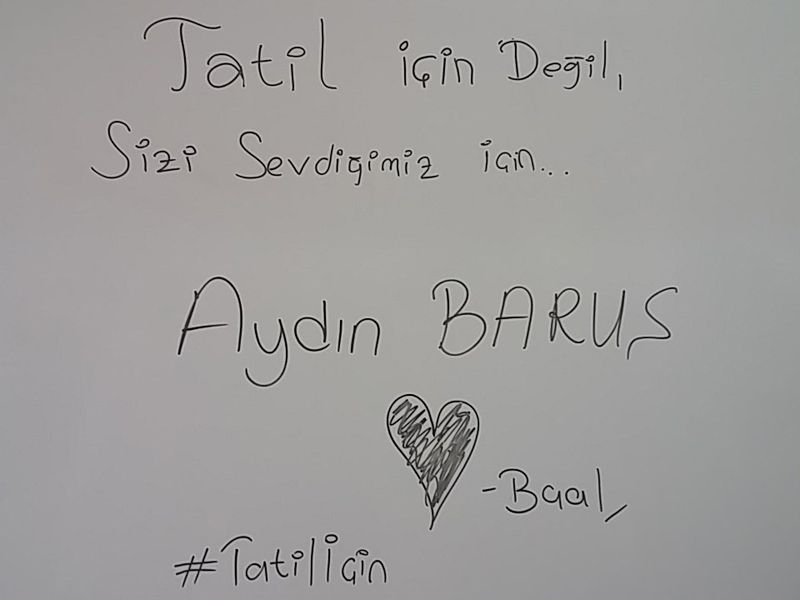 Tatil için Değil,
Sizi Sevdiğimiz için...
Aydın BARUS
-Baal,
#Tatilİçin